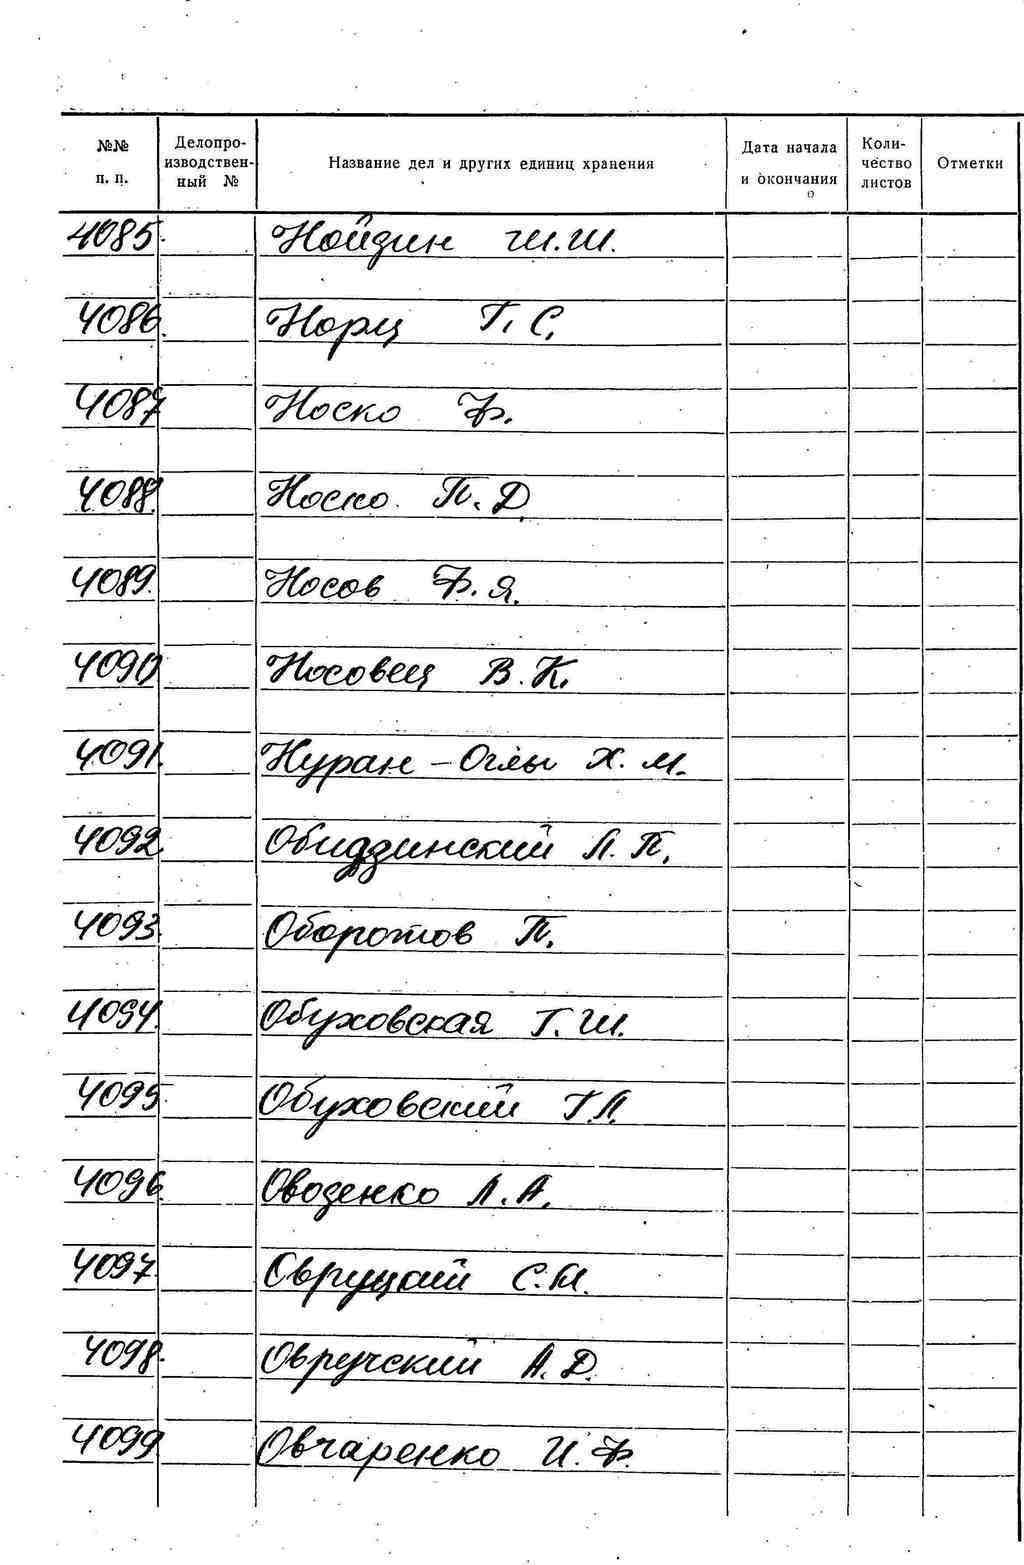 №№ п. п. Делопро-изводствен-ный № Название дел и других единиц хранения Дата начала и окончания Коли-чество листов Отметки
4085. Нойдин Ш.Ш.
4086. Норц Г. С.
4087 Носко Ф.
4088. Носко П. Д.
4089. Носов Ф. Я.
4090 Носовец В. К.
4091. Нуран-Оглы Х. М.
4092 Обидзинский Л. П.
4093. Оборотов П.
4094. Обуховская Г. Ш.
4095. Обуховский Г. Л.
4096. Оводенко Л. А.
4097. Овруцкий С. М.
4098. Овручский А. Д.
4099 Овчаренко И. Ф.